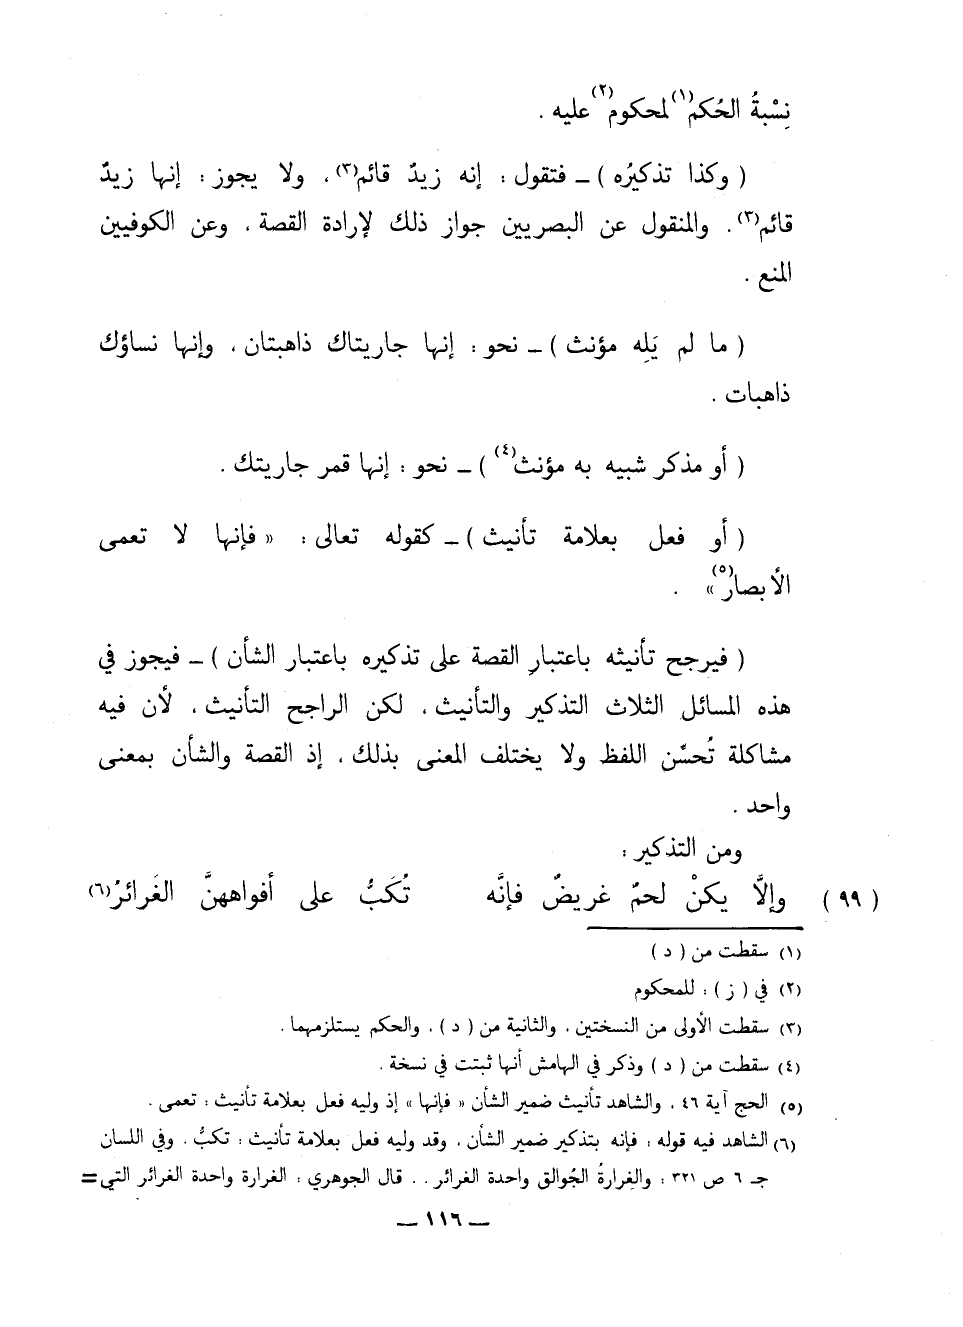 نِسْبةُ الحُكم(١) لمحكوم(٢) عليه .
( وكذا تذكيرُه ) ــ فتقول : إنه زيدٌ قائم(٣) ، ولا يجوز : إنها زيدٌ
قائم(٣) . والمنقول عن البصريين جواز ذلك لإرادة القصة ، وعن الكوفيين
المنع .
( ما لم يَلِه مؤنث ) ــ نحو : إنها جاريتاك ذاهبتان ، وإنها نساؤك
ذاهبات .
( أو مذكر شبيه به مؤنث(٤) ) ــ نحو : إنها قمر جاريتك .
( أو فعل بعلامة تأنيث ) ــ كقوله تعالى : « فإنها لا تعمى
الأبصار(٥) » .
( فيرجح تأنيثه باعتبارِ القصة على تذكيره باعتبار الشأن ) ــ فيجوز في
هذه المسائل الثلاث التذكير والتأنيث ، لكن الراجح التأنيث ، لأن فيه
مشاكلة تُحسّن اللفظ ولا يختلف المعنى بذلك ، إذ القصة والشأن بمعنى
واحد .
ومن التذكير :
( ٩٩ ) وإلاَّ يكنْ لحمٌ غريضٌ فإنَّه تُكَبُّ على أفواههنَّ الغَرائرُ(٦)
(١) سقطت من ( د )
(٢) في ( ز ) : للمحكوم
(٣) سقطت الأولى من النسختين ، والثانية من ( د ) ، والحكم يستلزمهما .
(٤) سقطت من ( د ) وذكر في الهامش أنها ثبتت في نسخة .
(٥) الحج آية ٤٦ ، والشاهد تأنيث ضمير الشأن « فإنها » إذ وليه فعل بعلامة تأنيث : تعمى .
(٦) الشاهد فيه قوله : فإنه بتذكير ضمير الشأن ، وقد وليه فعل بعلامة تأنيث : تكبُّ . وفي اللسان
جـ ٦ ص ٣٢١ : والغِرارةُ الجُوالق واحدة الغرائر . . قال الجوهري : الغرارة واحدة الغرائر التي =
ــ ١١٦ ــ